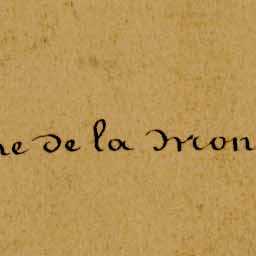 ne de la mon